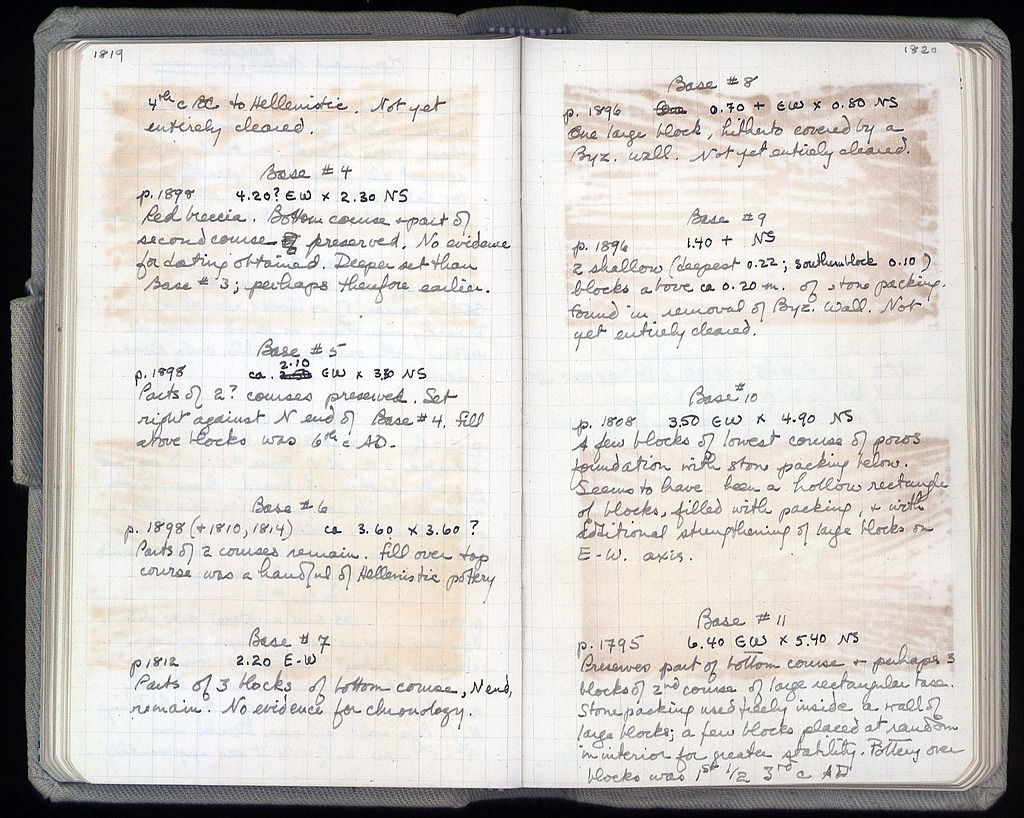 1819
4th c BC to Hellenistic. Not yet
entirely cleared.
Base #4
p. 1898 4.20? EW x 2.30 NS
Red breccia. Bottom course + part of
second course preserved. No evidence
for dating obtained. Deeper set than
Base #3; perhaps therefore earlier.
Base #5
p. 1898 ca. 2.10 EW x 3.30 NS
Parts of 2? courses preserved. Set
right against N end of Base #4. Fill
above blocks was 6th c AD.
Base #6
p. 1898 (+1810, 1814) ca 3.60 x 3.60 ?
Parts of 2 courses remain. Fill over top
course was a handful of Hellenistic pottery
Base #7
p 1812 2.20 E-W
Parts of 3 blocks of bottom course, N end,
remain. No evidence for chronology.
1820
Base #8
p. 1896 0.70 + EW x 0.80 NS
One large block, hitherto covered by a
Byz. wall. Not yet entirely cleared.
Base #9
p. 1896 1.40 + NS
2 shallow (deepest 0.22; southern block 0.10)
blocks above ca 0.20 m. of stone packing.
Found in removal of Byz. Wall. Not
yet entirely cleared.
Base #10
p. 1808 3.50 EW x 4.90 NS
A few blocks of lowest course of poros
foundation with stone packing below.
Seems to have been a hollow rectangle
of blocks, filled with packing, + with
additional strengthening of large blocks on
E-W. axis.
Base #11
p. 1795 6.40 EW x 5.40 NS
Preserves part of bottom course + perhaps 3
blocks of 2nd course of large rectangular base.
Stone packing used freely inside a wall of
large blocks; a few blocks placed at random
in interior for greater stability. Pottery over
blocks was 1st 1/2 3rd c AD